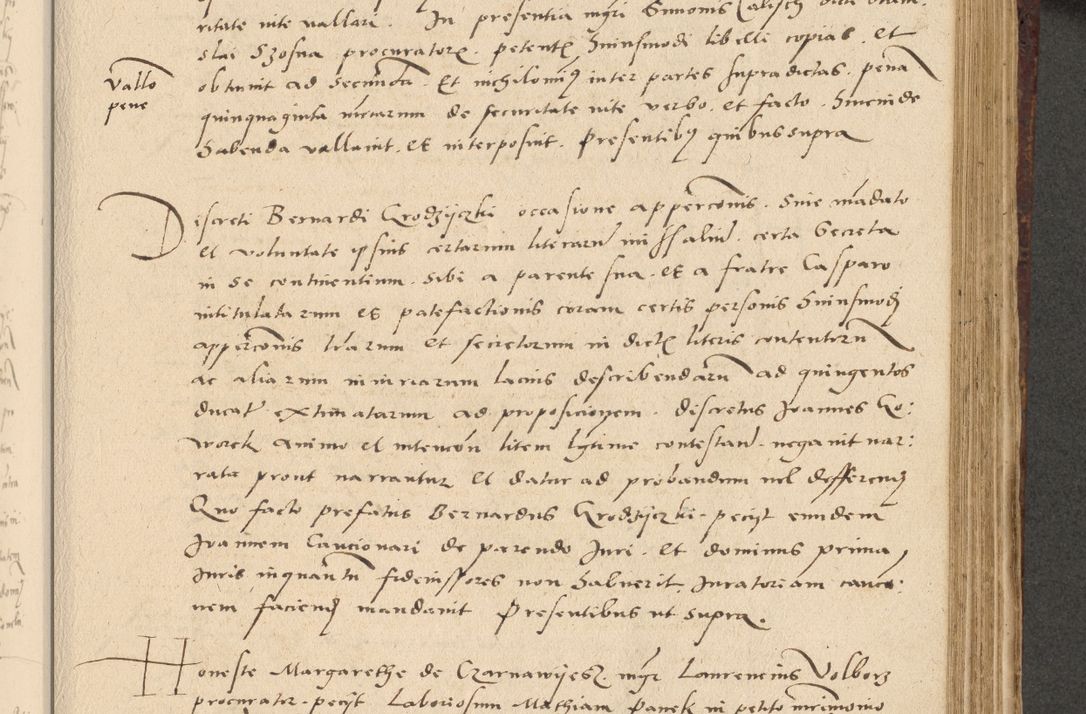 ritate vite vallari. In presentia mgri Simonis Calisch
slai Szosna procuratorz petentz huiusmodi libelli copias. Et
obtinuit ad secunda. Et nichilominus inter partes supradictas. pena
Vallo
pene
quinquaginta mrcarum de securitate vite verbo. et facto. hincinde
habenda vallavit. et interposuit. Presentibus quibus supra
Discreti Bernardi Grodzijczki occasione appercionis. sine mandato
et voluntate ipsius certarum literarum certa secreta
in se continentium. sibi a parente suo. et a fratre Casparo
intitulatarum et patefactionis coram certis personis huiusmodi
appercionis lrarum et secretorum in dictz literis contentorum
ac aliarum iniuriarum lacius describendarum ad quingentos
ducat extimatarum ad proposicionem. discretus Joannes Go:
worek animo et intencon litem lgtime contestand. negavit nar:
rata prout narrantur et datur ad probandum vel defferend
Quo facto prefatus Bernardus Grodzijczki. pecijt eundem
Joannem Caucionari de parendo Juri. Et dominus prima
Juris inquantum fideiussores non habuerit. Juratoream caucio:
nem faciend mandavit Presentibus ut supra.
Honeste Margarethe de Czarnawijesz. mgr Laurencius Volborz
procurator. pecijt Laboriosum Mathiam Panek in petito mrimonio